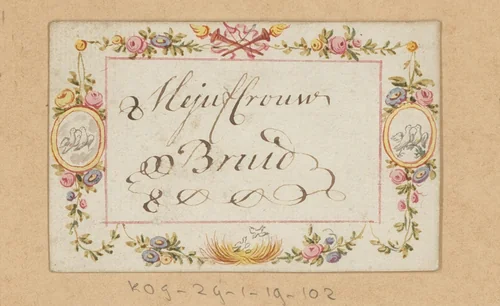 Mejuffrouw
Bruid
KOG-29-1-19-102